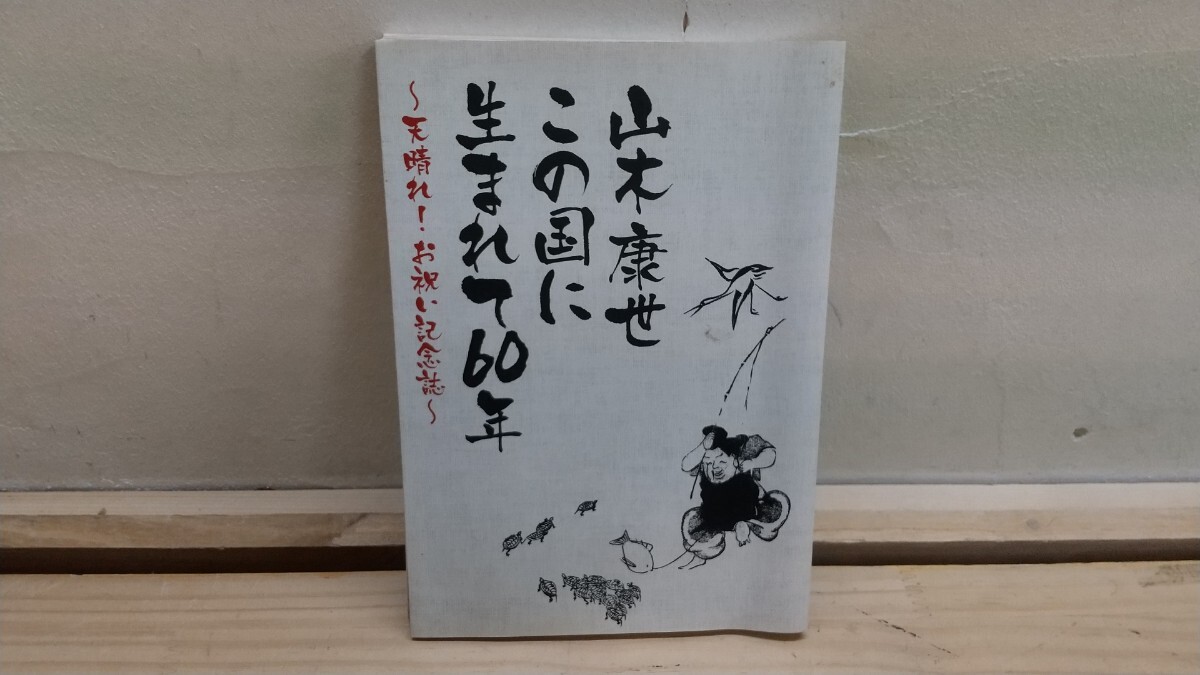 山木康世
この国に
生まれて60年
～天晴れ！お祝い記念誌～